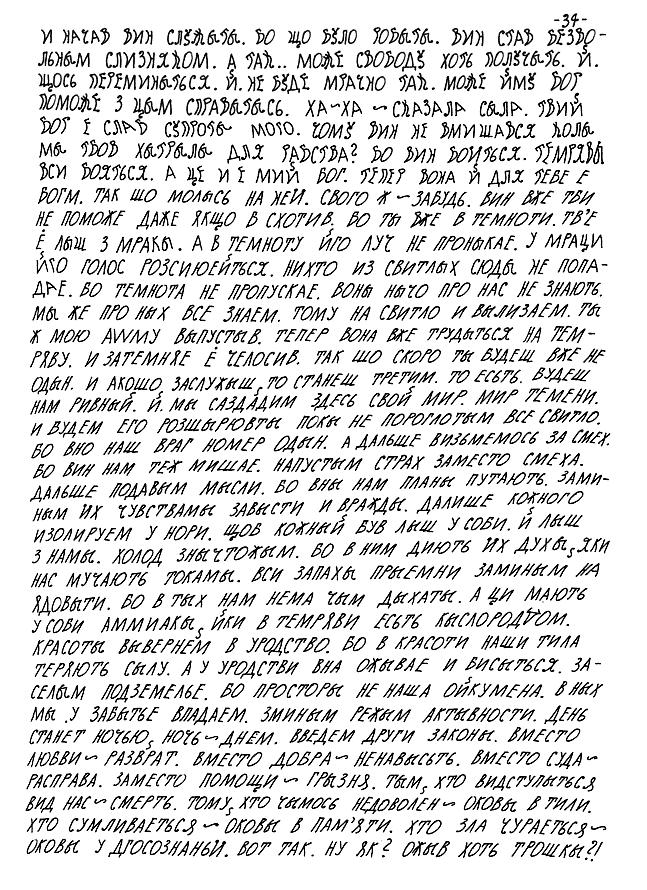 -34-
И НАЧАВ ВИН СЛУЖЫТЫ. БО ЩО БУЛО РОБЫТЫ. ВИН СТАВ БЕЗВО-
ЛЬНЫМ СЛИЗНЯКОМ. А ТАК.. МОЖЕ СВОБОДУ ХОТЬ ПОЛУЧЫТЬ. Й.
ЩОСЬ ПЕРЕМИНЫТЬСЯ. Й. НЕ БУДЕ МРАЧНО ТАК. МОЖЕ ЙМУ БОГ
ПОМОЖЕ З ЦЫМ СПРАВЫТЫСЬ. ХА~ХА ~ СКАЗАЛА СЫЛА. ТВИЙ
БОГ Е СЛАБ СУПРОТЫ МОГО. ЧОМУ ВИН НЕ ВМИШАВСЯ КОЛЫ
МЫ ТВОВ ХЫТРЫЛЫ ДЛЯ РАБСТВА? БО ВИН БОИТЬСЯ. ТЕМРЯВЫ
ВСИ БОЯТЬСЯ. А ЦЕ И Е МИЙ БОГ. ТЕПЕР ВОНА Й ДЛЯ ТЕБЕ Е
БОГМ. ТАК ШО МОЛЫСЬ НА НЕЙ. СВОГО Ж ~ ЗАБУДЬ. ВИН ВЖЕ ТБИ
НЕ ПОМОЖЕ ДАЖЕ ЯКЩО Б СХОТИВ. БО ТЫ ВЖЕ В ТЕМНОТИ. ТВ'Е
Е ЛЫШ З МРАКЫ. А В ТЕМНОТУ ЙГО ЛУЧ НЕ ПРОНЫКАЕ. У МРАЦИ
ЙГО ГОЛОС РОЗСИЮЕЙТЬСЯ. НИХТО ИЗ СВИТЛЫХ СЮДЫ НЕ ПОПА-
ДАЕ. БО ТЕМНОТА НЕ ПРОПУСКАЕ. ВОНЫ НЫЧО ПРО НАС НЕ ЗНАЮТЬ.
МЫ ЖЕ ПРО НЫХ ВСЕ ЗНАЕМ. ТОМУ НА СВИТЛО И ВЫЛИЗАЕМ. ТЫ
Ж МОЮ АWМУ ВЫПУСТЫВ. ТЕПЕР ВОНА ВЖЕ ТРУДЫТЬСЯ НА ТЕМ-
РЯВУ. И ЗАТЕМНЯЕ Ё ЧЕЛОСИВ. ТАК ШО СКОРО ТЫ БУДЕШ ВЖЕ НЕ
ОДЫН. И АКОШО ЗАСЛУЖЫШ, ТО СТАНЕШ ТРЕТИМ. ТО ЕСЬТЬ. БУДЕШ
НАМ РИВНЫЙ. Й. МЫ САЗДАДИМ ЗДЕСЬ СВОЙ МИР. МИР ТЕМЕНИ.
И БУДЕМ ЕГО РОЗШЫРЮВТЫ ПОКЫ НЕ ПОРОГЛОТЫМ ВСЕ СВИТЛО.
БО ВНО НАШ ВРАГ НОМЕР ОДЫН. А ДАЛЬШЕ ВИЗЬМЕМОСЬ ЗА СМЕХ.
БО ВИН НАМ ТЕЖ МИШАЕ. НАПУСТЫМ СТРАХ ЗАМЕСТО СМЕХА.
ДАЛЬШЕ ПОДАВЫМ МЫСЛИ. БО ВНЫ НАМ ПЛАНЫ ПУТАЮТЬ. ЗАМИ-
НЫМ ИХ ЧУВСТВАМЫ ЗАВЫСТИ И ВРАЖДЫ. ДАЛИШЕ КОЖНОГО
ИЗОЛИРУЕМ У НОРИ. ЩОБ КОЖНЫЙ БУВ ЛЫШ У СОБИ. Й ЛЫШ
З НАМЫ. ХОЛОД ЗНЫЧТОЖЫМ. БО В НИМ ДИЮТЬ ИХ ДУХЫ, ЯКИ
НАС МУЧАЮТЬ ТОКАМЫ. ВСИ ЗАПАХЫ ПРЫЕМНИ ЗАМИНЫМ НА
ЯДОВЫТИ. БО В ТЫХ НАМ НЕМА ЧЫМ ДЫХАТЫ. А ЦИ МАЮТЬ
У СОБИ АММИАКЫ, ЙКИ В ТЕМРЯВИ ЕСЬТЬ КЫСЛОРОДОМ.
КРАСОТЫ ВЫВЕРНЕМ В УРОДСТВО. БО В КРАСОТИ НАШИ ТИЛА
ТЕРЯЮТЬ СЫЛУ. А У УРОДСТВИ ВНА ОЖЫВАЕ И БИСЫТЬСЯ. ЗА-
СЕЛЫМ ПОДЗЕМЕЛЬЕ. БО ПРОСТОРЫ НЕ НАША ОЙКУМЕНА. В НЫХ
МЫ У ЗАБЫТЬЕ ВПАДАЕМ. ЗМИНЫМ РЕЖЫМ АКТЫВНОСТИ. ДЕНЬ
СТАНЕТ НОЧЬЮ, НОЧЬ ~ ДНЕМ. ВВЕДЕМ ДРУГИ ЗАКОНЫ. ВМЕСТО
ЛЮБВИ ~ РАЗВРАТ. ВМЕСТО ДОБРА ~ НЕНАВЫСЬТЬ. ВМЕСТО СУДА ~
РАСПРАВА. ЗАМЕСТО ПОМОЩИ ~ ГРЫЗНЯ. ТЫМ, ХТО ВИДСТУПЫТЬСЯ
ВИД НАС ~ СМЕРТЬ. ТОМУ, ХТО ЧЫМОСЬ НЕДОВОЛЕН ~ ОКОВЫ В ТИЛИ.
ХТО СУМЛИВАЕТЬСЯ ~ ОКОВЫ В ПАМ'ЯТИ. ХТО ЗЛА ЧУРАЕТЬСЯ ~
ОКОВЫ У ДГОСОЗНАНЬИ. ВОТ ТАК. НУ ЯК? ОЖЫВ ХОТЬ ТРОШКЫ?!